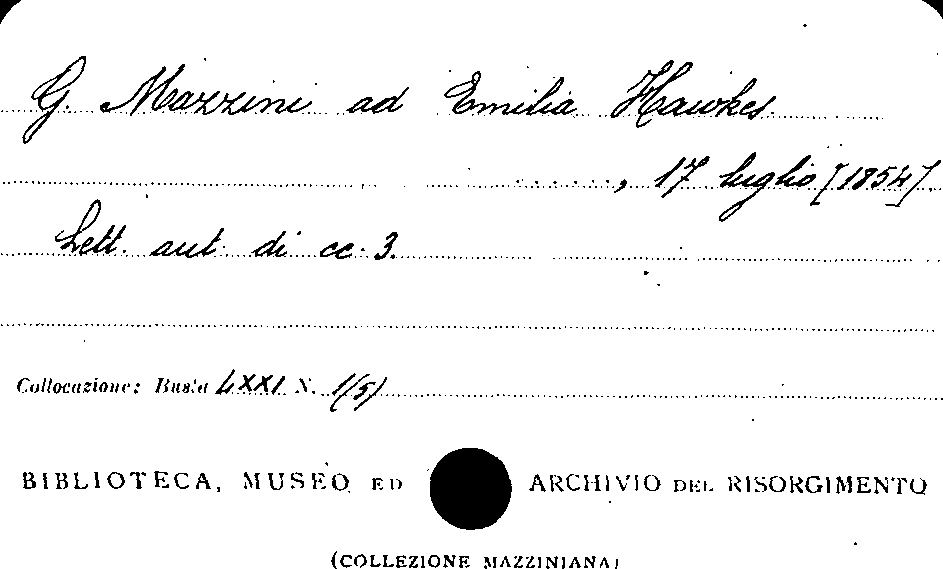 G. Mazzini ad Emilia Hawkes.
......, 17 luglio [1854]
Lett. aut. di cc. 3.
Collocazione: Busta LXXI N. 1(5)
BIBLIOTECA, MUSEO ED ARCHIVIO DEL RISORGIMENTO
(COLLEZIONE MAZZINIANA)